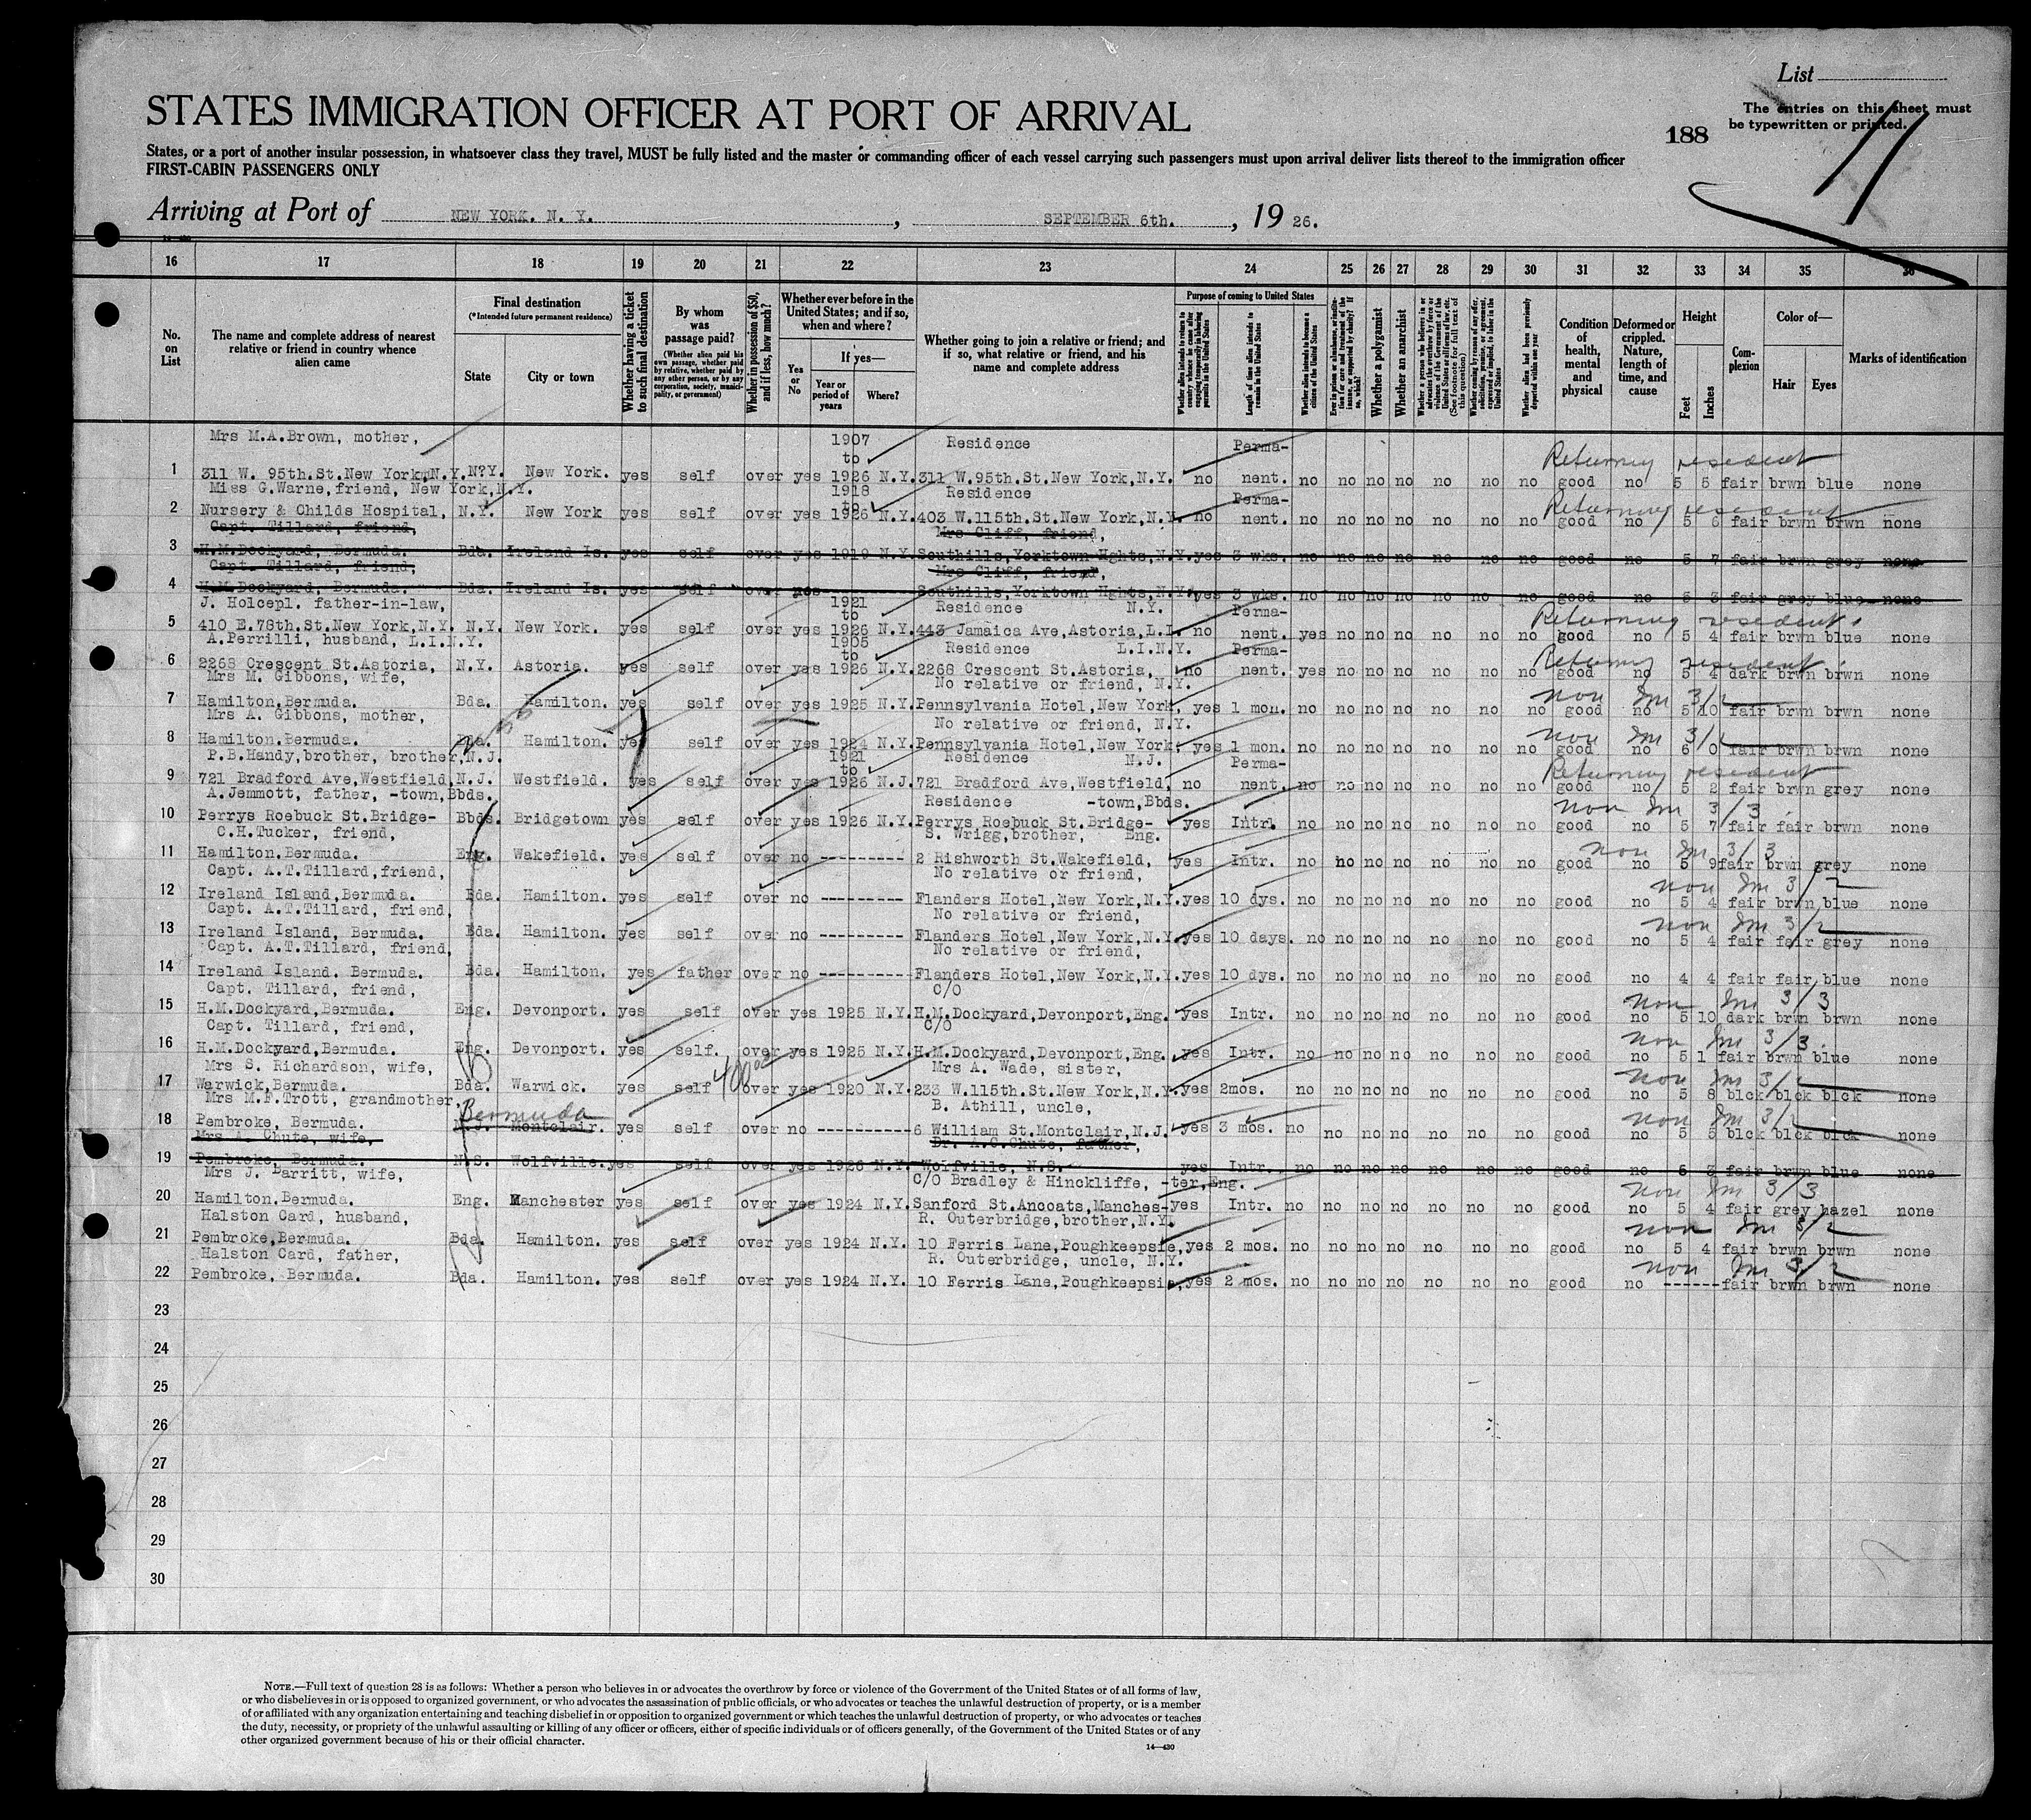 List
The entries on this sheet must
be typewritten or printed.
188
11
STATES IMMIGRATION OFFICER AT PORT OF ARRIVAL
States, or a port of another insular possession, in whatsoever class they travel, MUST be fully listed and the master or commanding officer of each vessel carrying such passengers must upon arrival deliver lists thereof to the immigration officer
FIRST-CABIN PASSENGERS ONLY
Arriving at Port of NEW YORK. N. Y., SEPTEMBER 6th., 19 26.
16 17 18 19 20 21 22 23 24 25 26 27 28 29 30 31 32 33 34 35 36
No. on List
The name and complete address of nearest relative or friend in country whence alien came
Final destination
(*Intended future permanent residence)
State
City or town
Whether having a ticket to such final destination
By whom was passage paid?
(Whether alien paid his own passage, whether paid by relative, whether paid by any other person, or by any corporation, society, municipality, or government)
Whether in possession of $50, and if less, how much?
Whether ever before in the United States; and if so, when and where?
Yes or No
If yes—
Year or period of years
Where?
Whether going to join a relative or friend; and if so, what relative or friend, and his name and complete address
Purpose of coming to United States
Length of time alien intends to remain in the United States
Whether alien intends to become a citizen of the United States
Whether a polygamist
Whether an anarchist
Whether alien had been previously deported within one year
Condition of health, mental and physical
Deformed or crippled. Nature, length of time, and cause
Height
Feet
Inches
Complexion
Color of—
Hair
Eyes
Marks of identification
Mrs M.A.Brown, mother, 1907 to Residence Perma- Returning resident
1 311 W. 95th.St.New York,N.Y. N?Y. New York. yes self over yes 1926 N.Y. 311 W.95th.St.New York,N.Y. no nent. no no no no no no no good no 5 5 fair brwn blue none
Miss G.Warne,friend, New York,N.Y. 1918 to Residence Perma- Returning resident
2 Nursery & Childs Hospital, N.Y. New York yes self over yes 1926 N.Y. 403 W.115th.St.New York,N.Y. no nent. no no no no no no no good no 5 6 fair brwn brwn none
Capt. Tillard, friend, Mrs Cliff, friend,
3 H.M.Dockyard, Bermuda. Bda. Ireland Is. yes self over yes 1919 N.Y. Southills,Yorktown Hghts,N.Y. yes 3 wks. no no no no no no no good no 5 7 fair brwn grey none
Capt. Tillard, friend, Mrs Cliff, friend,
4 H.M.Dockyard, Bermuda. Bda. Ireland Is. yes self over Southills,Yorktown Hghts,N.Y. yes 3 wks. no no no no no no no good no 5 3 fair grey blue none
J. Holcepl. father-in-law, 1921 to Residence N.Y. Perma- Returning resident
5 410 E.78th.St.New York,N.Y. N.Y. New York. yes self over yes 1926 N.Y. 443 Jamaica Ave,Astoria,L.I. no nent. yes no no no no no no good no 5 4 fair brwn blue none
A.Perrilli, husband, L.I.N.Y. 1905 to Residence L.I.N.Y. Perma- Returning resident
6 2268 Crescent St.Astoria, N.Y. Astoria. yes self over yes 1926 N.Y. 2268 Crescent St.Astoria, no nent. yes no no no no no no good no 5 4 dark brwn brwn none
Mrs M. Gibbons, wife, No relative or friend, N.Y. non Im 3/2
7 Hamilton,Bermuda. Bda. Hamilton. yes self over yes 1925 N.Y. Pennsylvania Hotel,New York, yes 1 mon. no no no no no no no good no 5 10 fair brwn brwn none
Mrs A. Gibbons, mother, No relative or friend, N.Y. non Im 3/2
8 Hamilton.Bermuda. Bda. Hamilton. yes self over yes 1924 N.Y. Pennsylvania Hotel,New York, yes 1 mon. no no no no no no no good no 6 0 fair brwn brwn none
P.B.Handy,brother, brother,N.J. 1921 to Residence N.J. Perma- Returning resident
9 721 Bradford Ave,Westfield, N.J. Westfield. yes self over yes 1926 N.J. 721 Bradford Ave,Westfield, no nent. no no no no no no no good no 5 2 fair brwn grey none
A.Jemmott, father, -town,Bbds. Residence -town,Bbds. non Im 3/3
10 Perrys Roebuck St.Bridge- Bbds. Bridgetown yes self over yes 1926 N.Y. Perrys Roebuck St.Bridge- yes Intrl no no no no no no no good no 5 7 fair fair brwn none
C.H.Tucker, friend, S. Wrigg,brother, Eng. non Im 3/3
11 Hamilton.Bermuda. Eng. Wakefield. yes self over no ---------- 2 Rishworth St.Wakefield, yes Intr. no no no no no no no good no 5 9fair brwn grey none
Capt. A.T.Tillard,friend, No relative or friend, non Im 3/2
12 Ireland Island,Bermuda. Bda. Hamilton. yes self over no ---------- Flanders Hotel,New York,N.Y. yes 10 dys. no no no no no no no good no 5 4 fair brwn blue none
Capt. A.T.Tillard, friend, No relative or friend, non Im 3/2
13 Ireland Island, Bermuda. Bda. Hamilton. yes self over no ---------- Flanders Hotel,New York,N.Y. yes 10 days. no no no no no no no good no 5 4 fair fair grey none
Capt. A.T.Tillard, friend, No relative or friend,
14 Ireland Island. Bermuda. Bda. Hamilton. yes father over no ---------- Flanders Hotel,New York,N.Y. yes 10 dys. no no no no no no no good no 4 4 fair fair blue none
Capt. Tillard, friend, C/O non Im 3/3
15 H.M.Dockyard,Bermuda. Eng. Devonport. yes self over yes 1925 N.Y. H.M.Dockyard,Devonport,Eng. yes Intr. no no no no no no no good no 5 10 dark brwn brwn none
Capt. Tillard, friend, C/O non Im 3/3.
16 H.M.Dockyard,Bermuda. Eng. Devonport. yes self. over yes 1925 N.Y. H.M.Dockyard,Devonport,Eng. yes Intr. no no no no no no no good no 5 1 fair brwn blue none
Mrs S. Richardson, wife, 400 Mrs A. Wade, sister, non Im 3/2
17 Warwick,Bermuda. Bda. Warwick. yes self over yes 1920 N.Y. 233 W.115th.St.New York,N.Y. yes 2mos. no no no no no no no good no 5 8 blck blck blck none
Mrs M.F.Trott, grandmother, Bermuda B. Athill, uncle, non Im 3/2
18 Pembroke, Bermuda. N.J. Montclair. yes self over no ---------- 6 William St.Montclair,N.J. yes 3 mos. no no no no no no no good no 5 5 blck blck blck none
Mrs A. Chute, wife, Dr. A.C.Chute, father,
19 Pembroke, Bermuda. N.S. Wolfville. yes self over yes 1926 N.Y. Wolfville, N.S. yes Intr. no no no no no no no good no 5 3 fair brwn blue none
Mrs J. Barritt, wife, C/O Bradley & Hinckliffe, -ter,Eng. non Im 3/3
20 Hamilton.Bermuda. Eng. Manchester yes self over yes 1924 N.Y. Sanford St.Ancoats,Manches- yes Intr. no no no no no no no good no 5 4 fair grey hazel none
Halston Card, husband, R. Outerbridge,brother,N.Y. non Im 3/2
21 Pembroke,Bermuda. Bda. Hamilton. yes self over yes 1924 N.Y. 10 Ferris Lane,Poughkeepsie, yes 2 mos. no no no no no no no good no 5 4 fair brwn brwn none
Halston Card, father, R. Outerbridge, uncle, N.Y. non Im 3/2
22 Pembroke, Bermuda. Bda. Hamilton. yes self over yes 1924 N.Y. 10 Ferris Lane,Poughkeepsie, yes 2 mos. no no no no no no no good no ------fair brwn brwn none
23
24
25
26
27
28
29
30
NOTE.—Full text of question 28 is as follows: Whether a person who believes in or advocates the overthrow by force or violence of the Government of the United States or of all forms of law,
or who disbelieves in or is opposed to organized government, or who advocates the assassination of public officials, or who advocates or teaches the unlawful destruction of property, or is a member
of or affiliated with any organization entertaining and teaching disbelief in or opposition to organized government or which teaches the unlawful destruction of property, or who advocates or teaches
the duty, necessity, or propriety of the unlawful assaulting or killing of any officer or officers, either of specific individuals or of officers generally, of the Government of the United States or of any
other organized government because of his or their official character.
14—430